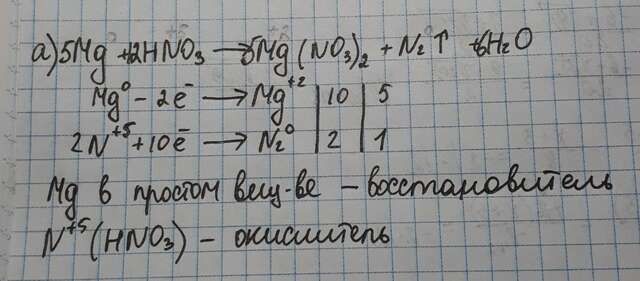 а) 5Mg + 12HNO₃ → 5Mg(NO₃)₂ + N₂↑ + 6H₂O
Mg⁰ - 2e⁻ → Mg⁺² | 10 | 5
2N⁺⁵ + 10e⁻ → N₂⁰ | 2 | 1
Mg в простом вещ-ве – восстановитель
N⁺⁵ (HNO₃) – окислитель